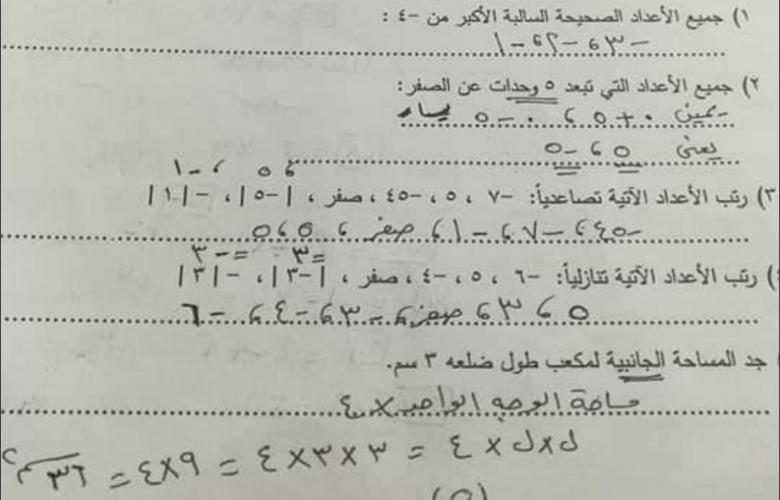 ١) جميع الأعداد الصحيحة السالبة الأكبر من -٤ :
-٣، -٢، -١
٢) جميع الأعداد التي تبعد ٥ وحدات عن الصفر:
يمين ٠ + ٥، ٠ - ٥ يسار
يعني ٥، -٥
٥، -١
٣) رتب الأعداد الآتية تصاعدياً: -٧ ، ٥ ، -٤٥ ، صفر ، |-٥| ، -|١|
-٤٥، -٧، -١، صفر، ٥، ٥
=٣ =-٣
) رتب الأعداد الآتية تنازلياً: -٦ ، ٥ ، -٤ ، صفر ، |-٣| ، -|٣|
٥، ٣، صفر، -٣، -٤، -٦
) جد المساحة الجانبية لمكعب طول ضلعه ٣ سم.
مساحة الوجه الواحد × ٤
ل × ل × ٤ = ٣ × ٣ × ٤ = ٩ × ٤ = ٣٦ سم٢
(٥)